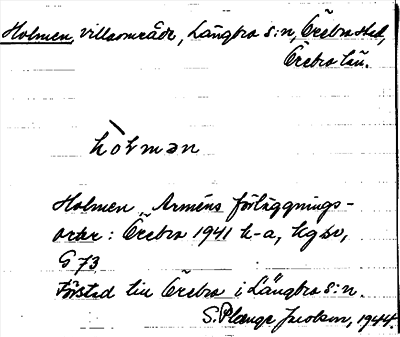 Holmen, villaområde, Längbro s:n, Örebro stad,
Örebro län.
hòlmən
Holmen Arméns förläggnings-
orter: Örebro 1941 h-a, hgbo,
G 73
Förstad till Örebro i Längbro s:n.
S. Plange Jacobson, 1944.